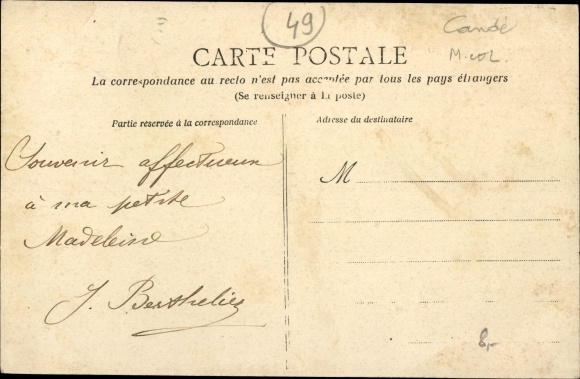 49
Candé
M-coL.
CARTE POSTALE
La correspondance au recto n'est pas acceptée par tous les pays étrangers
(Se renseigner à la poste)
Partie réservée à la correspondance
Adresse du destinataire
Souvenir affectueux
à ma petite
Madeleine
J. Berthelier
M
8,-